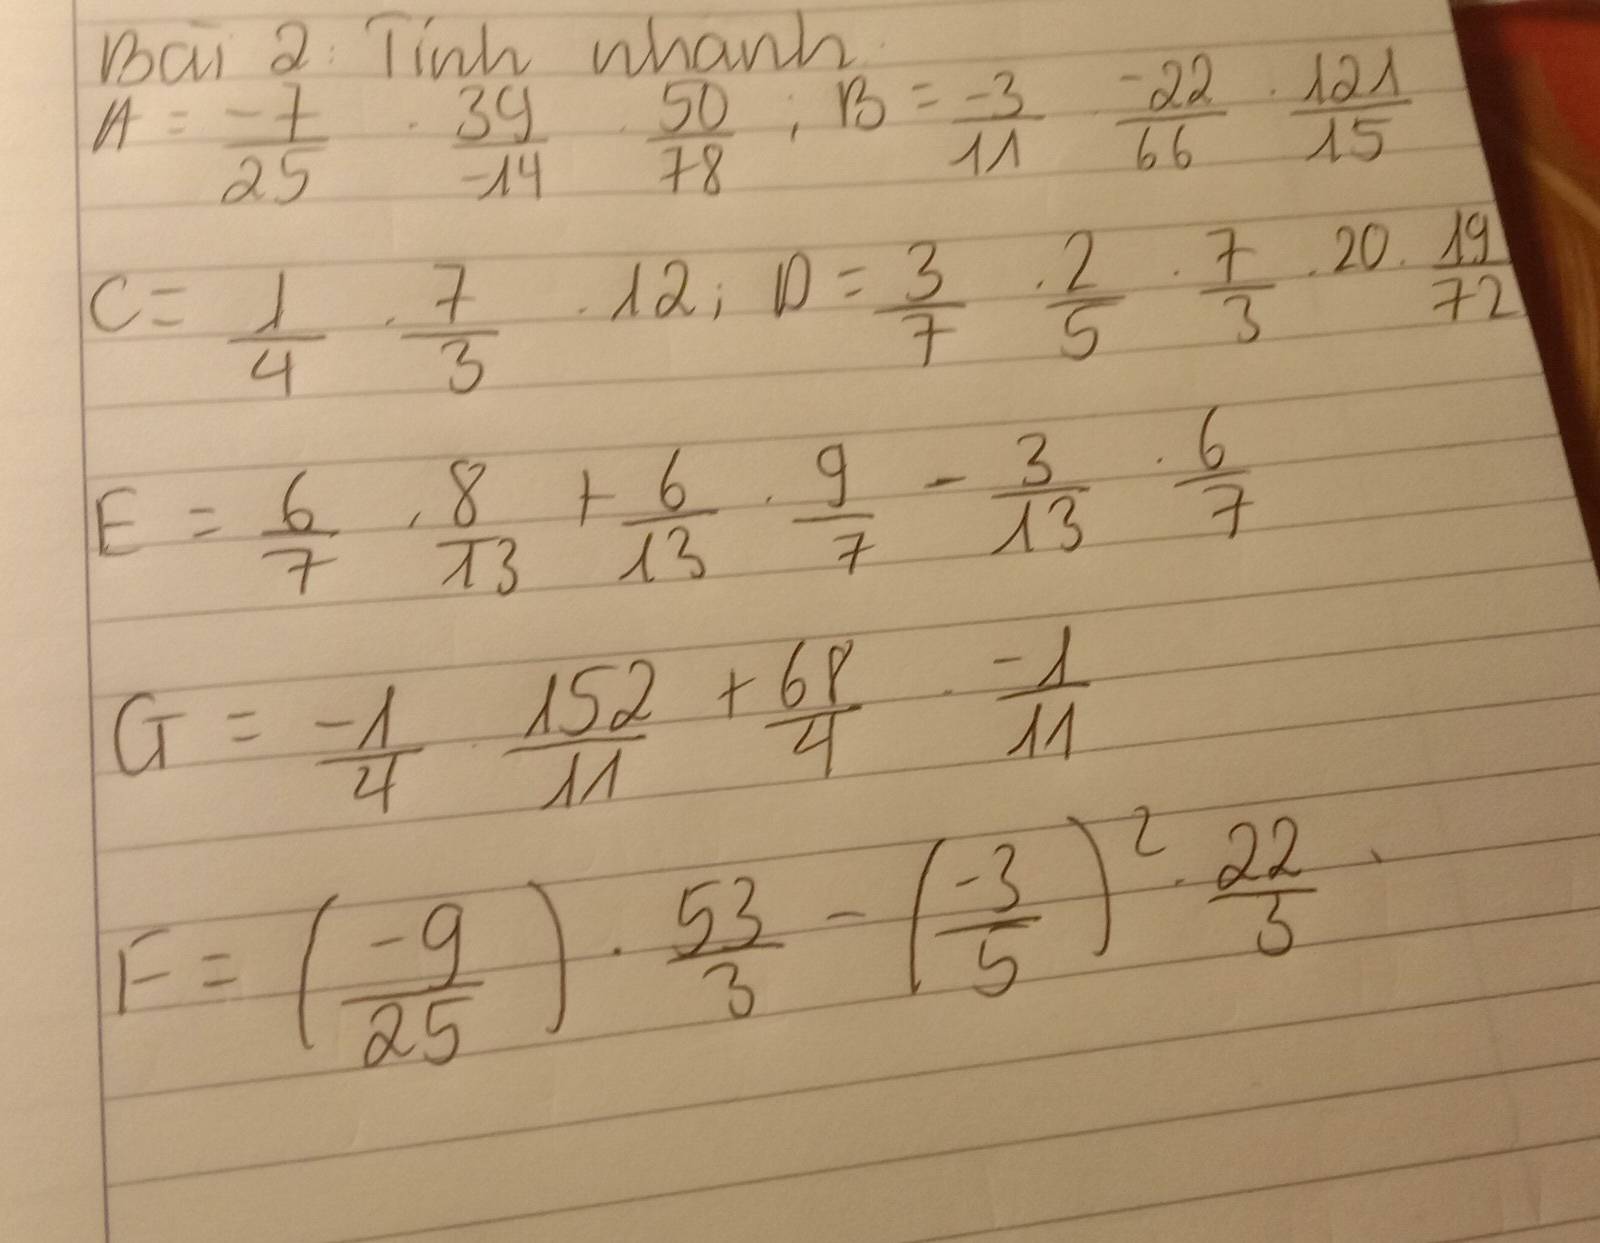 Bài 2: Tính nhanh
A = -7/25 . 39/-14 . 50/78 ; B = -3/11 . -22/66 . 121/15
C = 1/4 . 7/3 . 12 ; D = 3/7 . 2/5 . 7/3 . 20 . 19/72
E = 6/7 . 8/13 + 6/13 . 9/7 - 3/13 . 6/7
G = -1/4 . 152/11 + 68/4 . -1/11
F = (-9/25) . 53/3 - (-3/5)² . 22/3